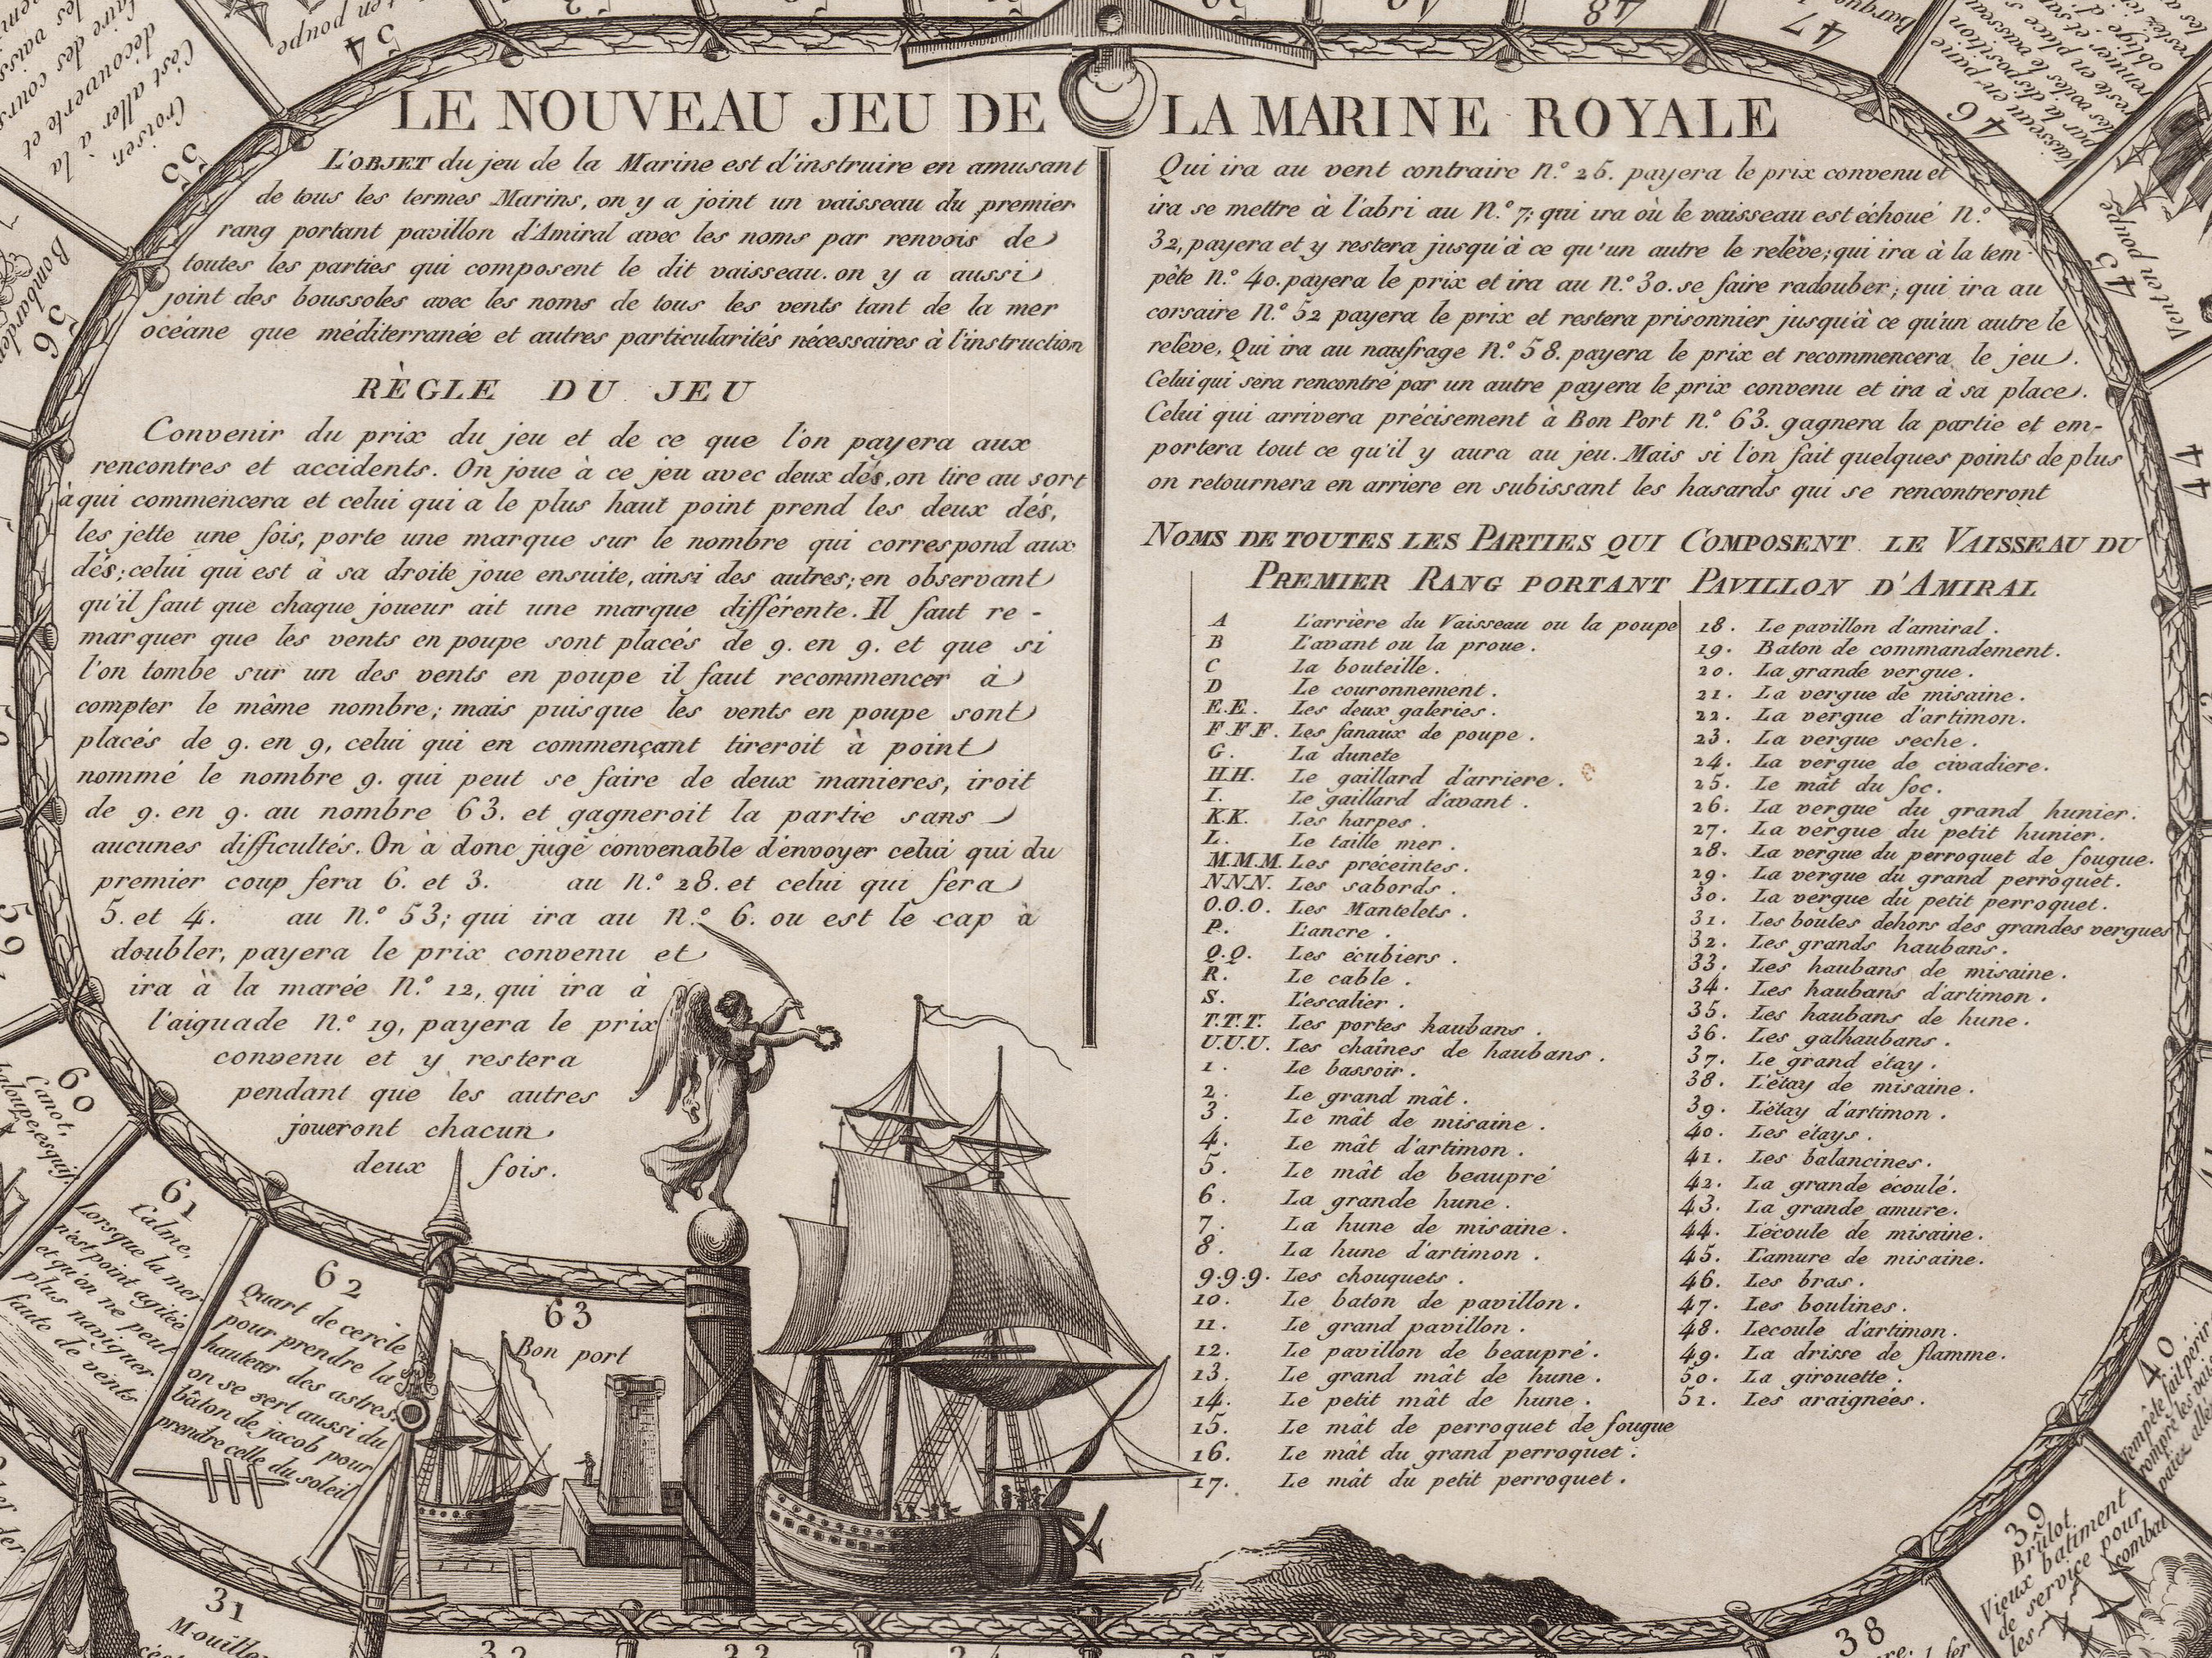 LE NOUVEAU JEU DE LA MARINE ROYALE
L'OBJET du jeu de la Marine est d'instruire en amusant
de tous les termes Marins, on y a joint un vaisseau du premier
rang portant pavillon d'Amiral avec les noms par renvois de
toutes les parties qui composent le dit vaisseau. on y a aussi
joint des boussoles avec les noms de tous les vents tant de la mer
océane que méditerranée et autres particularités nécessaires à l'instruction
RÈGLE DU JEU
Convenir du prix du jeu et de ce que l'on payera aux
rencontres et accidents. On joue à ce jeu avec deux dés, on tire au sort
à qui commencera et celui qui a le plus haut point prend les deux dés,
les jette une fois, porte une marque sur le nombre qui correspond aux
dés; celui qui est à sa droite joue ensuite, ainsi des autres; en observant
qu'il faut que chaque joueur ait une marque différente. Il faut re-
marquer que les vents en poupe sont placés de 9. en 9. et que si
l'on tombe sur un des vents en poupe il faut recommencer à
compter le même nombre; mais puisque les vents en poupe sont
placés de 9. en 9, celui qui en commençant tireroit à point
nommé le nombre 9. qui peut se faire de deux manieres, iroit
de 9. en 9. au nombre 63. et gagneroit la partie sans
aucunes difficultés. On à donc jugé convenable d'envoyer celui qui du
premier coup fera 6. et 3. au N.º 28. et celui qui fera
5. et 4. au N.º 53; qui ira au N.º 6. ou est le cap à
doubler, payera le prix convenu et
ira à la marée N.º 12, qui ira à
l'aiguade N.º 19, payera le prix
convenu et y restera
pendant que les autres
joueront chacun
deux fois.
Qui ira au vent contraire N.º 26. payera le prix convenu et
ira se mettre à l'abri au N.º 7; qui ira où le vaisseau est échoué N.º
32, payera et y restera jusqu'à ce qu'un autre le relève; qui ira à la tem-
pête N.º 40. payera le prix et ira au N.º 30. se faire radouber; qui ira au
corsaire N.º 52 payera le prix et restera prisonnier jusqu'à ce qu'un autre le
relève, Qui ira au naufrage N.º 58. payera le prix et recommencera le jeu.
Celui qui sera rencontré par un autre payera le prix convenu et ira à sa place.
Celui qui arrivera précisement à Bon Port N.º 63. gagnera la partie et em-
portera tout ce qu'il y aura au jeu. Mais si l'on fait quelques points de plus
on retournera en arriere en subissant les hasards qui se rencontreront
NOMS DE TOUTES LES PARTIES QUI COMPOSENT LE VAISSEAU DU
PREMIER RANG PORTANT PAVILLON D'AMIRAL
A L'arrière du Vaisseau ou la poupe
B L'avant ou la proue.
C La bouteille.
D Le couronnement.
E.E. Les deux galeries.
F.F.F. Les fanaux de poupe.
G. La dunete
H.H. Le gaillard d'arriere.
I. Le gaillard d'avant.
K.K. Les harpes.
L. Le taille mer.
M.M.M. Les préceintes.
N.N.N. Les sabords.
O.O.O. Les Mantelets.
P. L'ancre.
Q.Q. Les écubiers.
R. Le cable.
S. L'escalier.
T.T.T. Les portes haubans.
U.U.U. Les chaînes de haubans.
1. Le bassoir.
2. Le grand mât.
3. Le mât de misaine.
4. Le mât d'artimon.
5. Le mât de beaupré
6. La grande hune.
7. La hune de misaine.
8. La hune d'artimon.
9.9.9. Les chouquets.
10. Le baton de pavillon.
11. Le grand pavillon.
12. Le pavillon de beaupré.
13. Le grand mât de hune.
14. Le petit mât de hune.
15. Le mât de perroquet de fougue
16. Le mât du grand perroquet.
17. Le mât du petit perroquet.
18. Le pavillon d'amiral.
19. Baton de commandement.
20. La grande vergue.
21. La vergue de misaine.
22. La vergue d'artimon.
23. La vergue seche.
24. La vergue de civadiere.
25. Le mât du foc.
26. La vergue du grand hunier.
27. La vergue du petit hunier.
28. La vergue du perroquet de fougue.
29. La vergue du grand perroquet.
30. La vergue du petit perroquet.
31. Les boules dehors des grandes vergues
32. Les grands haubans.
33. Les haubans de misaine.
34. Les haubans d'artimon.
35. Les haubans de hune.
36. Les galhaubans.
37. Le grand étay.
38. L'étay de misaine.
39. L'étay d'artimon.
40. Les étays.
41. Les balancines.
42. La grande écoulé.
43. La grande amure.
44. L'écoule de misaine.
45. L'amure de misaine.
46. Les bras.
47. Les boulines.
48. L'ecoule d'artimon.
49. La drisse de flamme.
50. La girouette.
51. Les araignées.
31
Mouille
38
39
Brûlot
Vieux batiment
de service pour
les
combat
40
Tempête
44
45
Vent en poupe
46
Vaisseau en
panne
47
48
54
en poupe
55
Croiser,
C'est aller à la
découverte et
faire des cours
56
Bombarder
59
60
Canot,
61
Calme,
Lorsque la mer
n'est point agitée
et qu'on ne peut
plus naviguer
faute de vents
62
Quart de cercle
pour prendre la
hauteur des astres
on se sert aussi du
bâton de jacob pour
prendre celle du soleil
63
Bon port